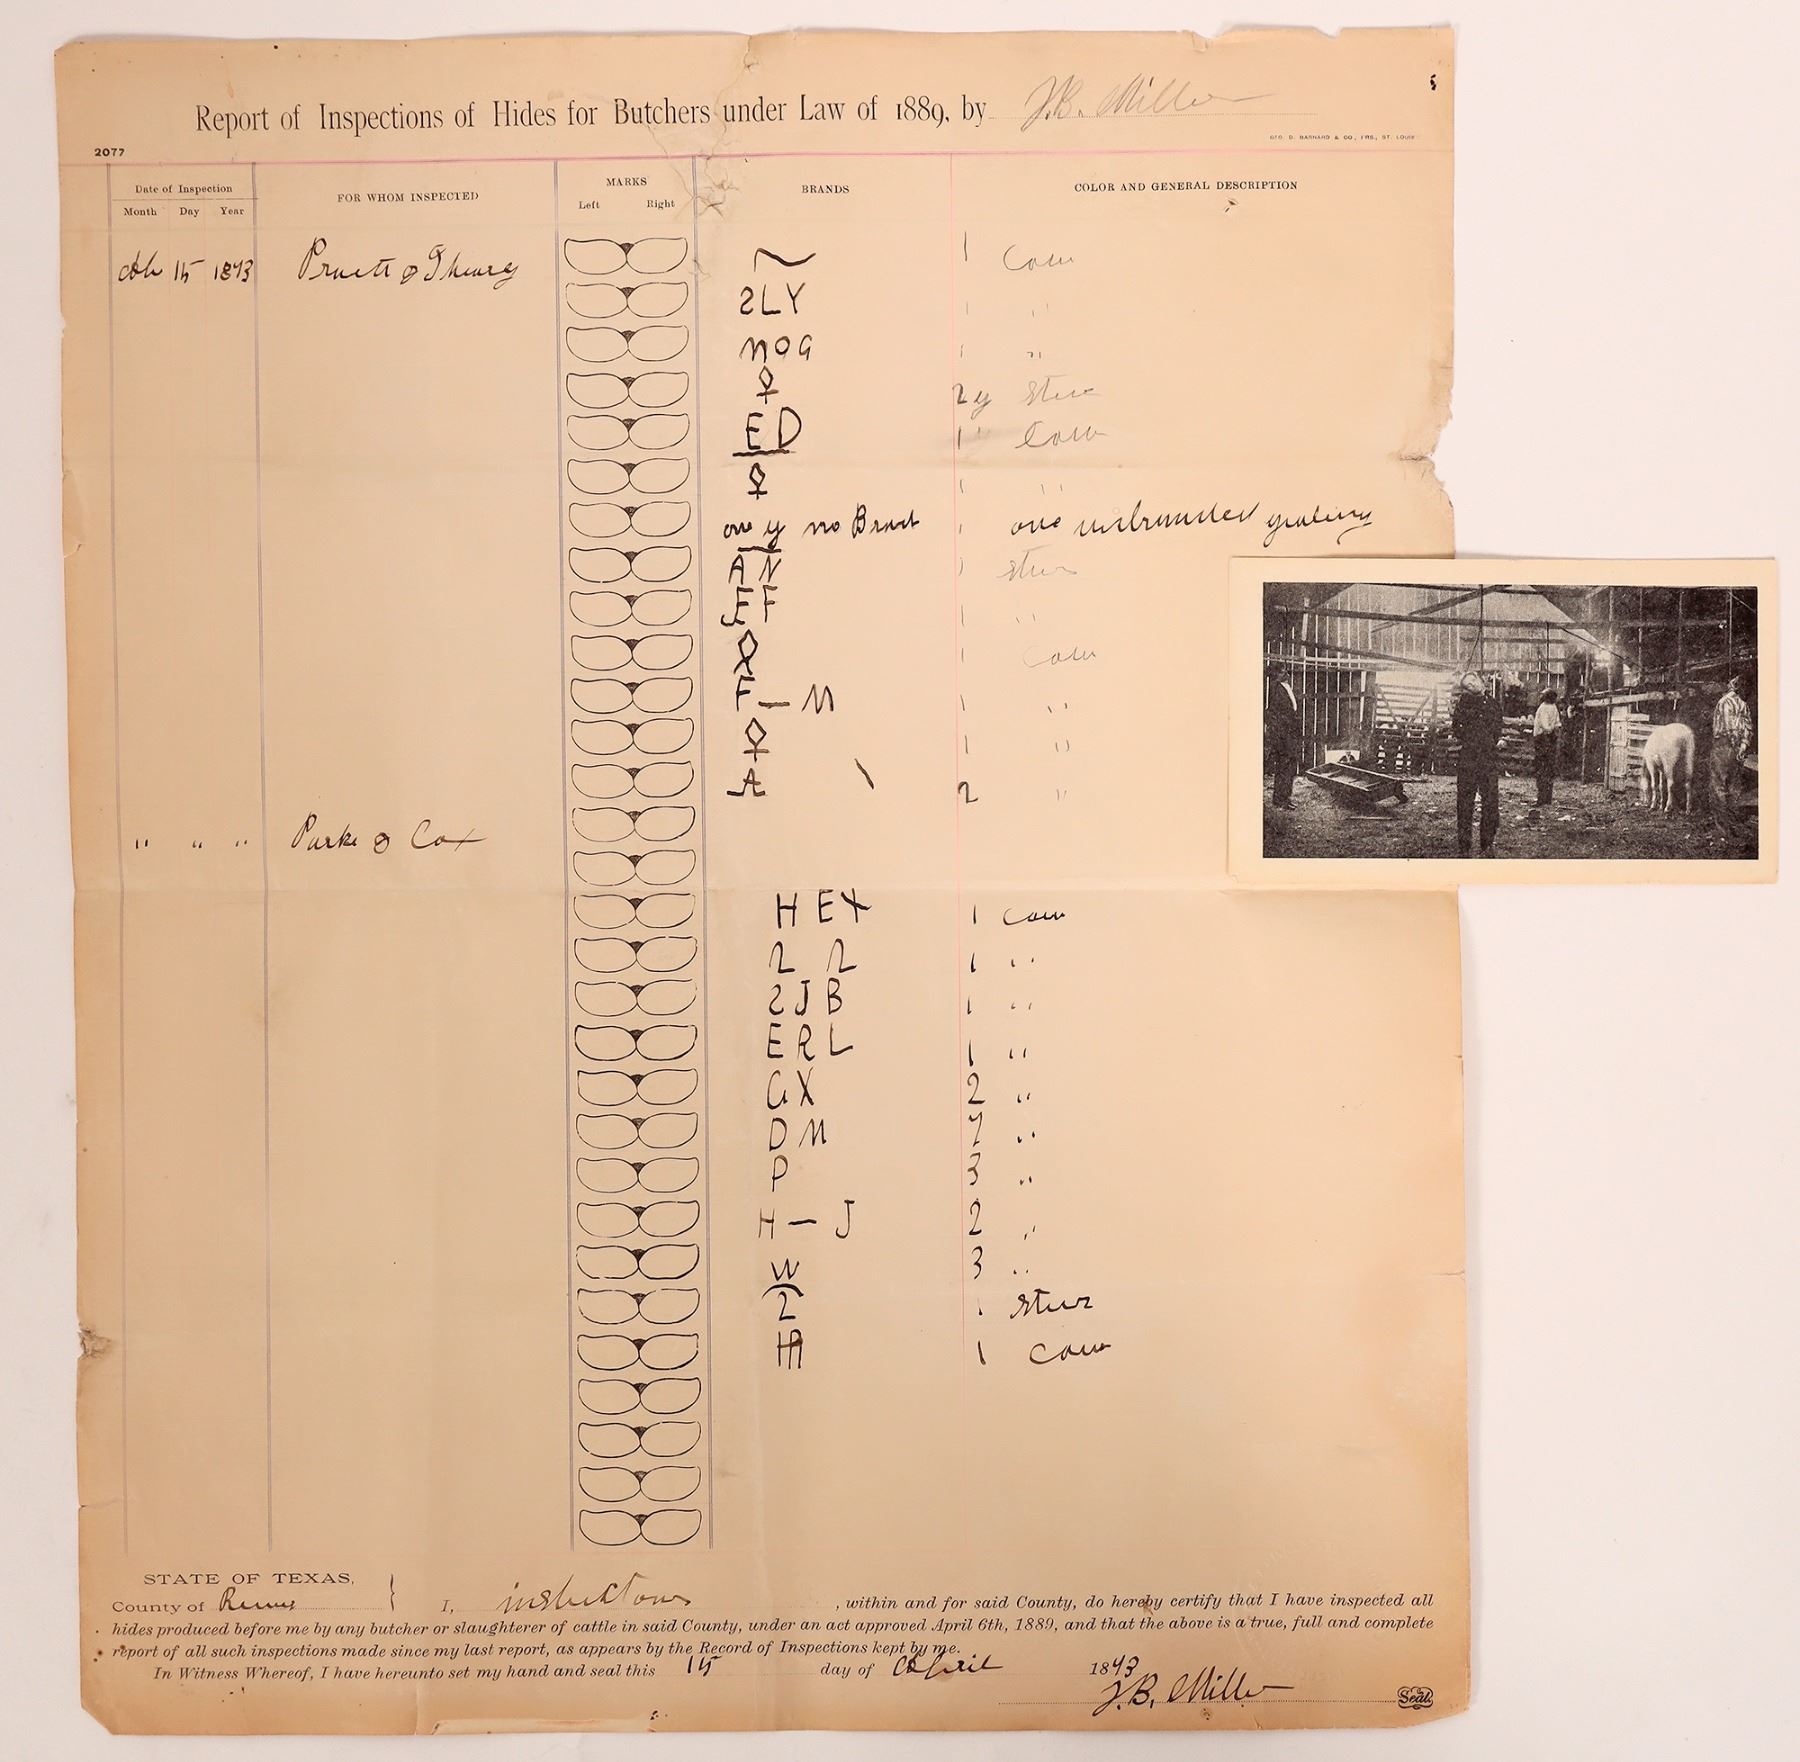 Report of Inspections of Hides for Butchers under Law of 1889, by J.B. Miller
GEO. D. BARNARD & CO., PRS., ST. LOUIS
2077
Date of Inspection
Month Day Year
FOR WHOM INSPECTED
MARKS
Left Right
BRANDS
COLOR AND GENERAL DESCRIPTION
15 1893 Pruett & 1 Cow
SLY 1 "
NOG 1 "
2 y Steer
ED 1 " Cow
1 "
one y no Brand 1 one unbranded yearling
AN 1 Steer
EF 1 "
1 Cow
F — M 1 "
1 "
A 2 "
" " " Parks & Cox
HEX 1 Cow
2 2 1 "
2JB 1 "
ERL 1 "
GX 2 "
DM 7 "
P 3 "
H — J 2 "
W 3 "
2 1 Steer
1 Cow
STATE OF TEXAS,
County of Reeves } I, , within and for said County, do hereby certify that I have inspected all
hides produced before me by any butcher or slaughterer of cattle in said County, under an act approved April 6th, 1889, and that the above is a true, full and complete
report of all such inspections made since my last report, as appears by the Record of Inspections kept by me.
In Witness Whereof, I have hereunto set my hand and seal this 15 day of April 1893
J.B. Miller Seal